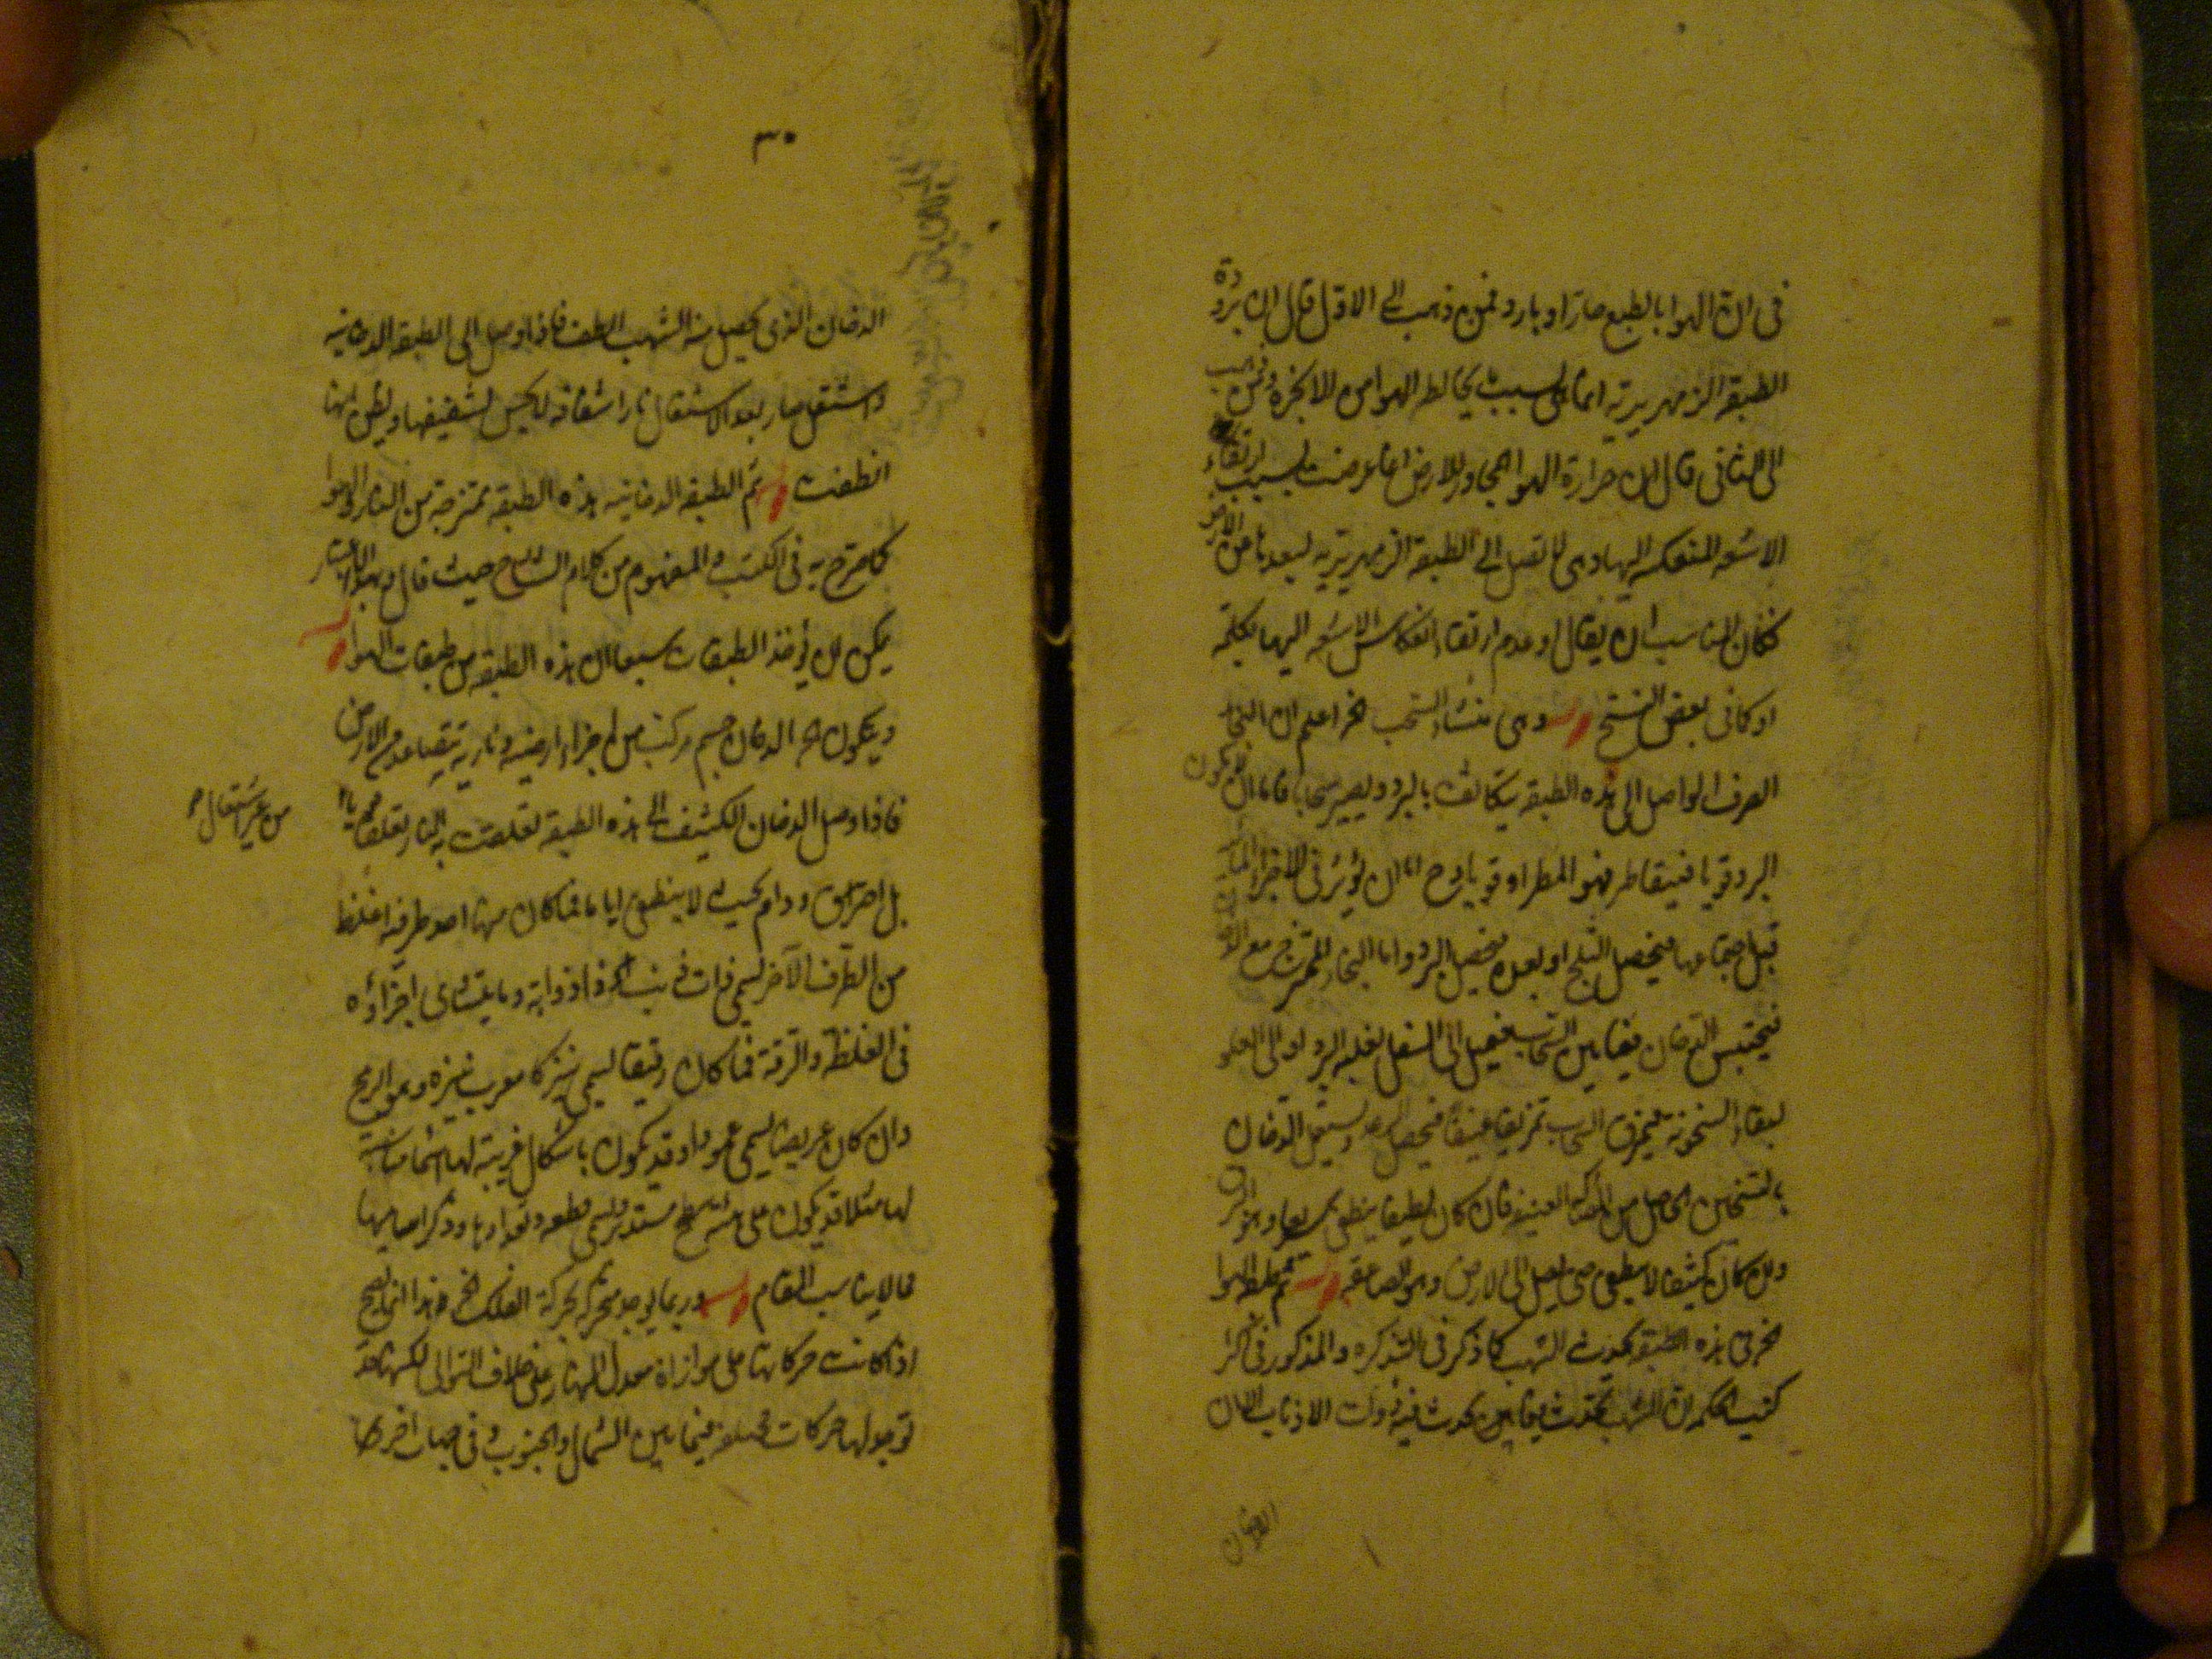 فى ان الهوا بالطبع حارّ او بارد فمن ذهب الى الاوّل قال ان برودة
الطبقة الزمهريرية انما هى بسبب ما يخالط الهوا من الابخرة ومن ذهب
الى الثانى قال ان حرارة الهوا المجاور للارض انما عرضت بسبب ارتقاء
الاشعه المنعكسه اليها وهى لا تصل الى الطبقة الزمهريرية لبعدها عن الارض
فكان المناسب ان يقال او عدم ارتقاء انعكاس الاشعه اليها بكلمة
او كما فى بعض النسخ قوله وهى منشاء السحب الخ اعلم ان البخار
الصرف الواصل الى هذه الطبقه يتكاثف بالبرد ويصير سحابا فاما ان لا يكون
البرد قويا فيتقاطر فهو المطر او قويا وح اما ان يؤثر فى الاجزاء المائية
قبل اجتماعها فيحصل الثلج او بعده فيحصل البرد واما البخار الممتزج مع الدخان
فيحتبس الدخان فيما بين السحاب فيميل الى السفل لغلبة البرد او الى العلو
لبقاء السخونة فيمزق السحاب تمزيقا عنيفا فيحصل الرعد ويشتعل الدخان
بالتسخين الحاصل من الحركة العنيفة فان كان لطيفا ينطفى سريعا وهو البرق
وان كان كثيفا لا ينطفى حتى يصل الى الارض وهو الصاعقه قوله ثم طبقة الهوا
الخ فى هذه الطبقة يحدث الشهب كما ذكر فى التذكره والمذكور فى اكثر
كتب الحكمة ان الشهب يحدث فيما بين يحدث فيه ذوات الاذناب لان
الدخان
٣٠
الدخان الذى يحصل منه الشهب الطف فاذا وصل الى الطبقة الدخانيه
واشتعل صار بعد الاشتعال نارا شفافه لا يحس لشفيفها ويظن انها
انطفت قوله ثم الطبقه الدخانيه هذه الطبقة ممتزجة من النار والهوا
كما صرح به فى الكتب والمفهوم من كلام الشارح حيث قال وبهذا الاعتبار
يمكن ان يؤخذ الطبقات سبعا ان هذه الطبقه من طبقات الهوا قوله
ويتكون الخ الدخان جسم مركب من اجزاء ارضيه وناريه يتصاعد من الارض
فاذا وصل الدخان الكثيف الى هذه الطبقة تعلقت به النار تعلقا ما
من غير اشتعال
بل احترق ودام بحيث لا ينطفى اياما فما كان منها احد طرفيه اغلظ
من الطرف الآخر يسمى ذات ذنب او ذا ذوابة وما يتساوى اجزاؤه
فى الغلظة والرقة فما كان رقيقا يسمى نيزكا معرب نيزه وهو الرمح
وان كان عريضا يسمى عمودا وقد يكون باشكال غريبة لها اسماء مناسبة
لها مثلا قد يكون على سطح مستدير يسمى قطعه وتعدادها وذكر اساميها
مما لا يناسب المقام قوله وربما يوجد متحركة بحركة الفلك الخ هذا انما يصح
اذا كانت حركاتها على موازاة معدل النهار على خلاف التوالى لكنها قد
توجد لها حركات مختلفة فيما بين الشمال والجنوب وفى جهات اخر كما